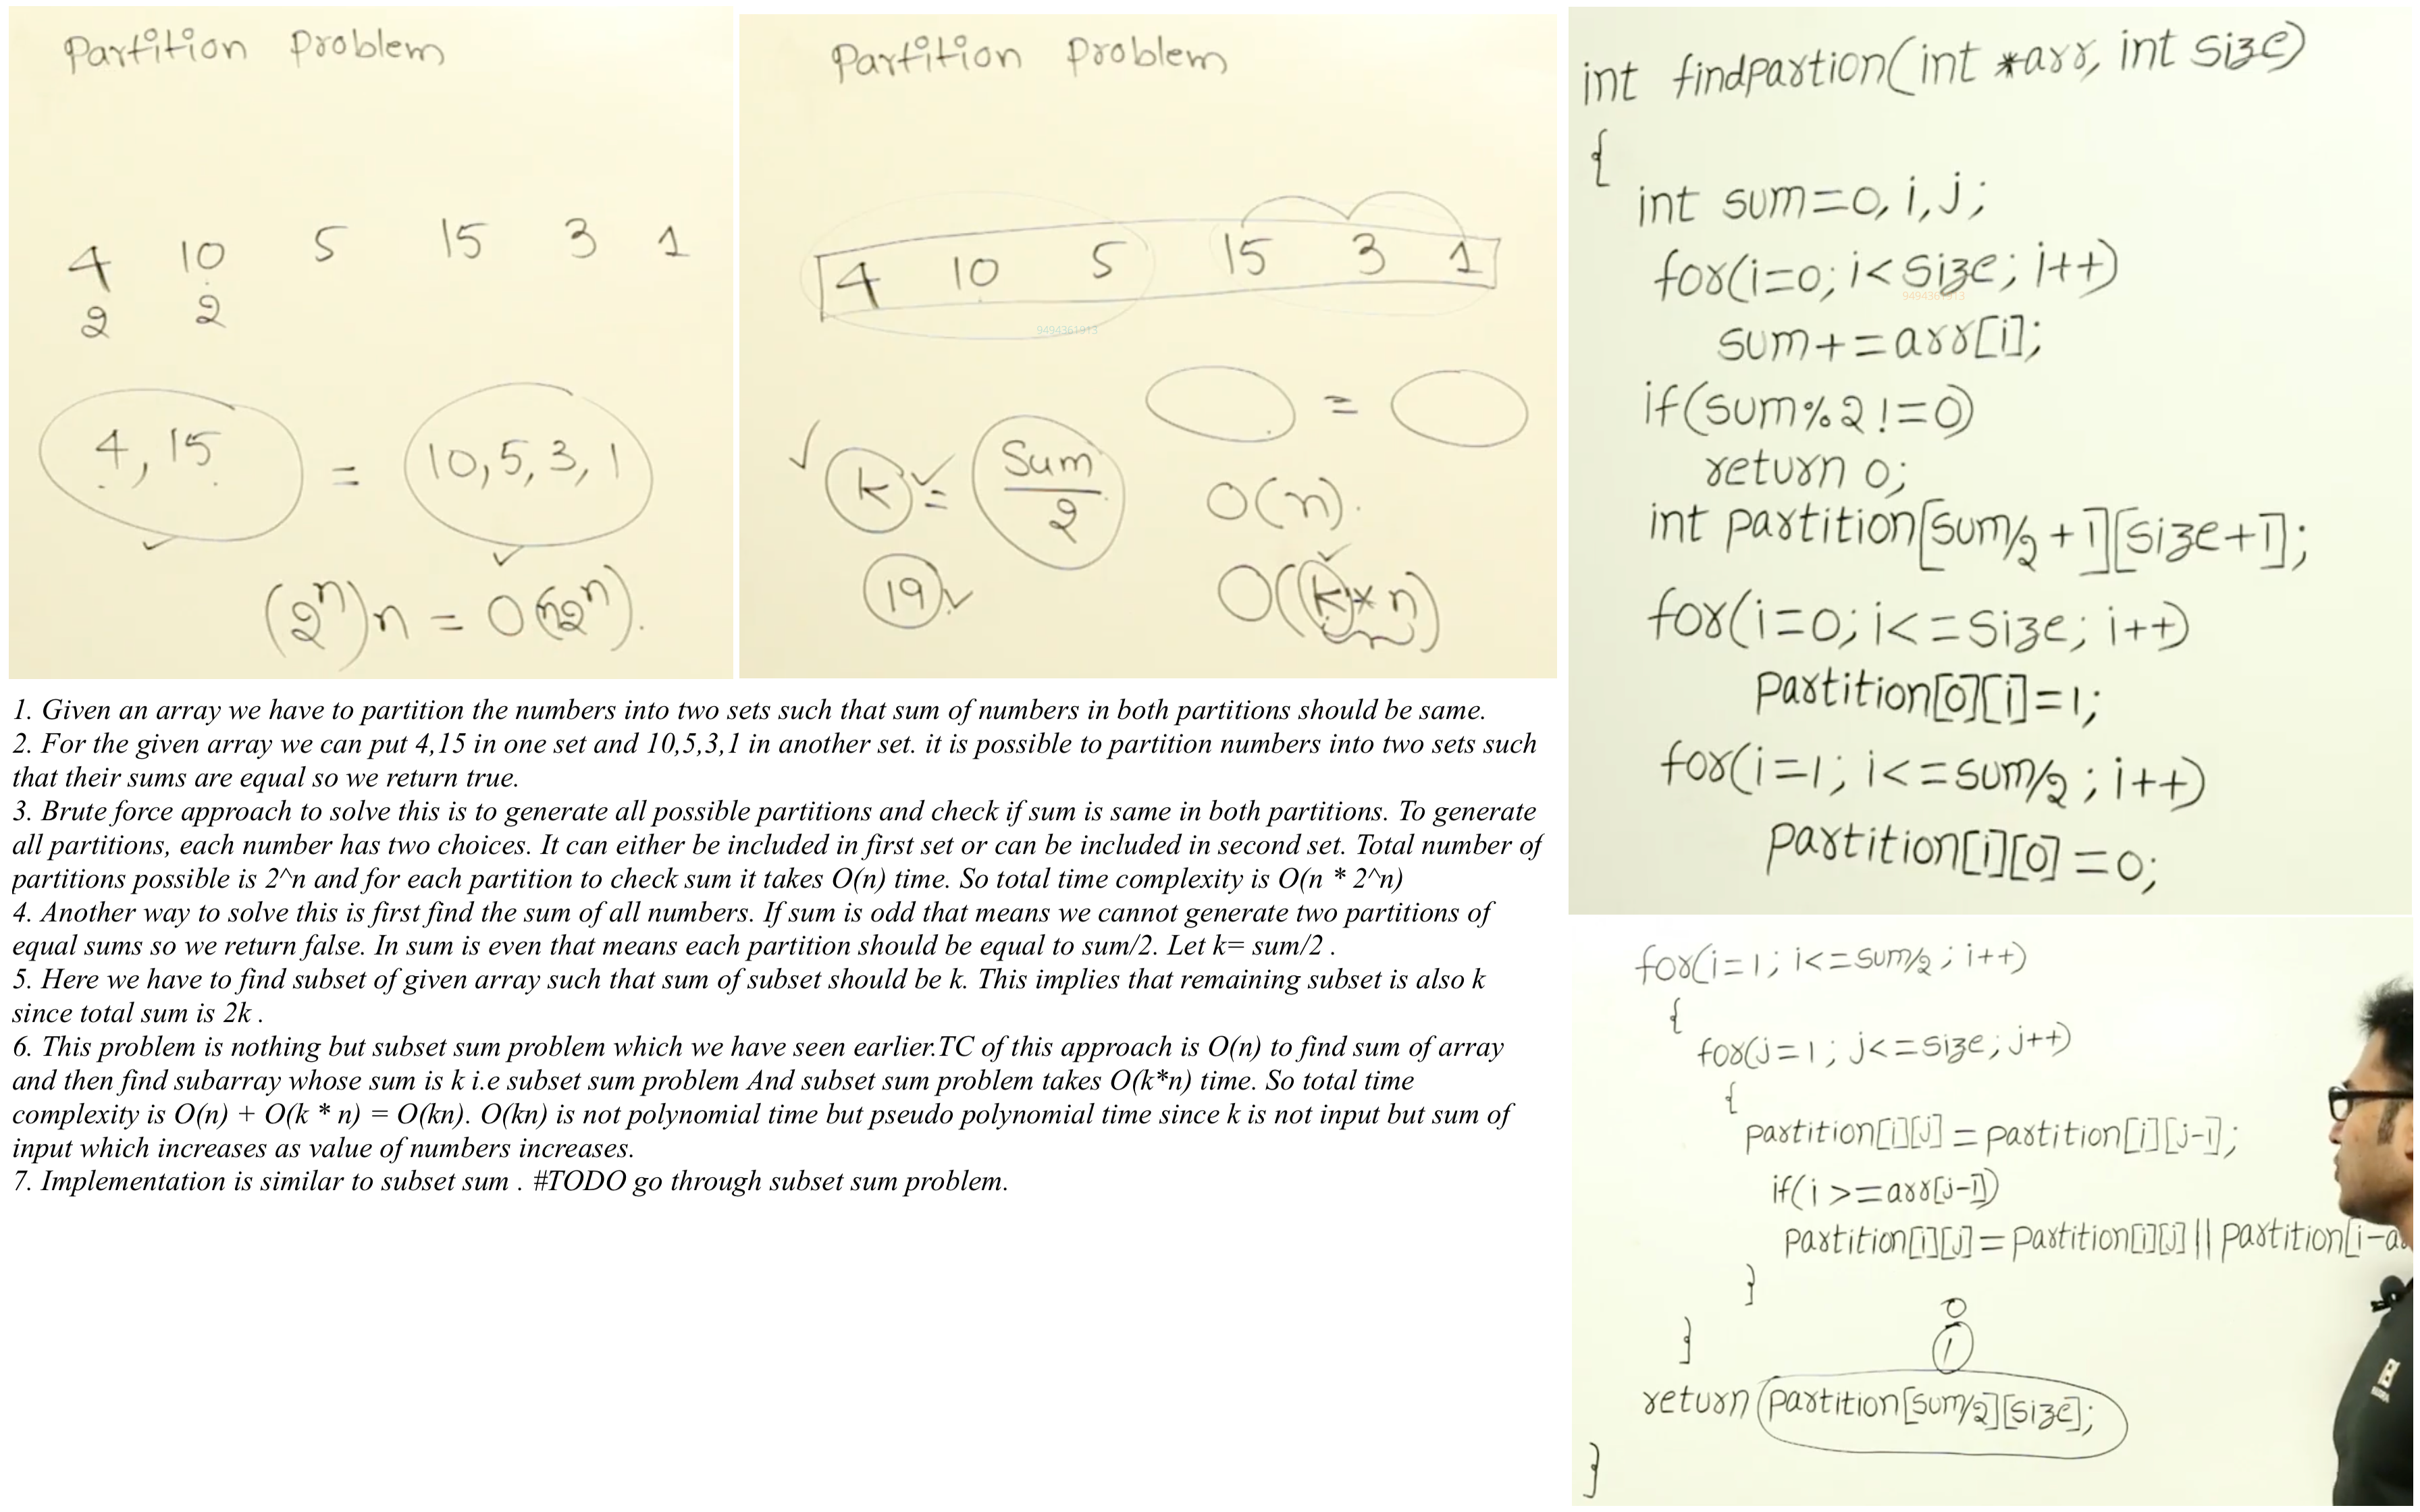 Partition Problem
4 10 5 15 3 1
2 2
4, 15 = 10, 5, 3, 1
(2^n)n = O(n2^n).
Partition Problem
4 10 5 15 3 1
9494361913
=
k = Sum/2 O(n).
19 O(k*n)
1. Given an array we have to partition the numbers into two sets such that sum of numbers in both partitions should be same.
2. For the given array we can put 4,15 in one set and 10,5,3,1 in another set. it is possible to partition numbers into two sets such
that their sums are equal so we return true.
3. Brute force approach to solve this is to generate all possible partitions and check if sum is same in both partitions. To generate
all partitions, each number has two choices. It can either be included in first set or can be included in second set. Total number of
partitions possible is 2^n and for each partition to check sum it takes O(n) time. So total time complexity is O(n * 2^n)
4. Another way to solve this is first find the sum of all numbers. If sum is odd that means we cannot generate two partitions of
equal sums so we return false. In sum is even that means each partition should be equal to sum/2. Let k= sum/2 .
5. Here we have to find subset of given array such that sum of subset should be k. This implies that remaining subset is also k
since total sum is 2k .
6. This problem is nothing but subset sum problem which we have seen earlier.TC of this approach is O(n) to find sum of array
and then find subarray whose sum is k i.e subset sum problem And subset sum problem takes O(k*n) time. So total time
complexity is O(n) + O(k * n) = O(kn). O(kn) is not polynomial time but pseudo polynomial time since k is not input but sum of
input which increases as value of numbers increases.
7. Implementation is similar to subset sum . #TODO go through subset sum problem.
int findpartion(int *arr, int size)
{
int sum=0, i, j;
for(i=0; i<size; i++)
9494361913
sum+=arr[i];
if(sum%2!=0)
return 0;
int partition[sum/2+1][size+1];
for(i=0; i<=size; i++)
partition[0][i]=1;
for(i=1; i<=sum/2; i++)
partition[i][0]=0;
for(i=1; i<=sum/2; i++)
{
for(j=1; j<=size; j++)
{
partition[i][j]=partition[i][j-1];
if(i>=arr[j-1])
partition[i][j]=partition[i][j]||partition[i-a
}
0
}
1
return partition[sum/2][size];
}